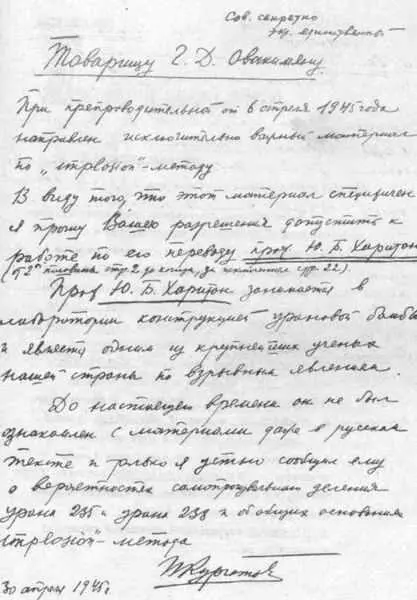 Сов. секретно
экз. единственный
Товарищу Г. Д. Овакимяну
При препроводительной от 6 апреля 1945 года
направлен исключительно важный материал
по „implosion“-методу
В виду того, что этот материал специфичен
я прошу Вашего разрешения допустить к
работе по его переводу проф. Ю. Б. Харитон
(от 2й половины стр 2 до конца, за исключением стр. 22).
Проф Ю. Б. Харитон занимается в
лаборатории конструкцией урановой бомбы
и является одним из крупнейших ученых
нашей страны по взрывным явлениям.
До настоящего времени он не был
ознакомлен с материалами даже в русском
тексте и только я устно сообщил ему
о вероятностях самопроизвольного деления
урана 235 и урана 238 и об общих основаниях
„implosion“-метода
И Курчатов
30 апреля 1945 г.